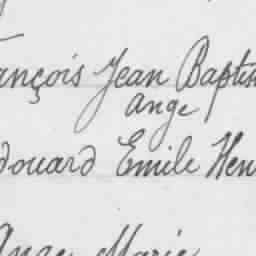 ançois Jean Baptis
Ange
douard Emile Hen
Ange Marie